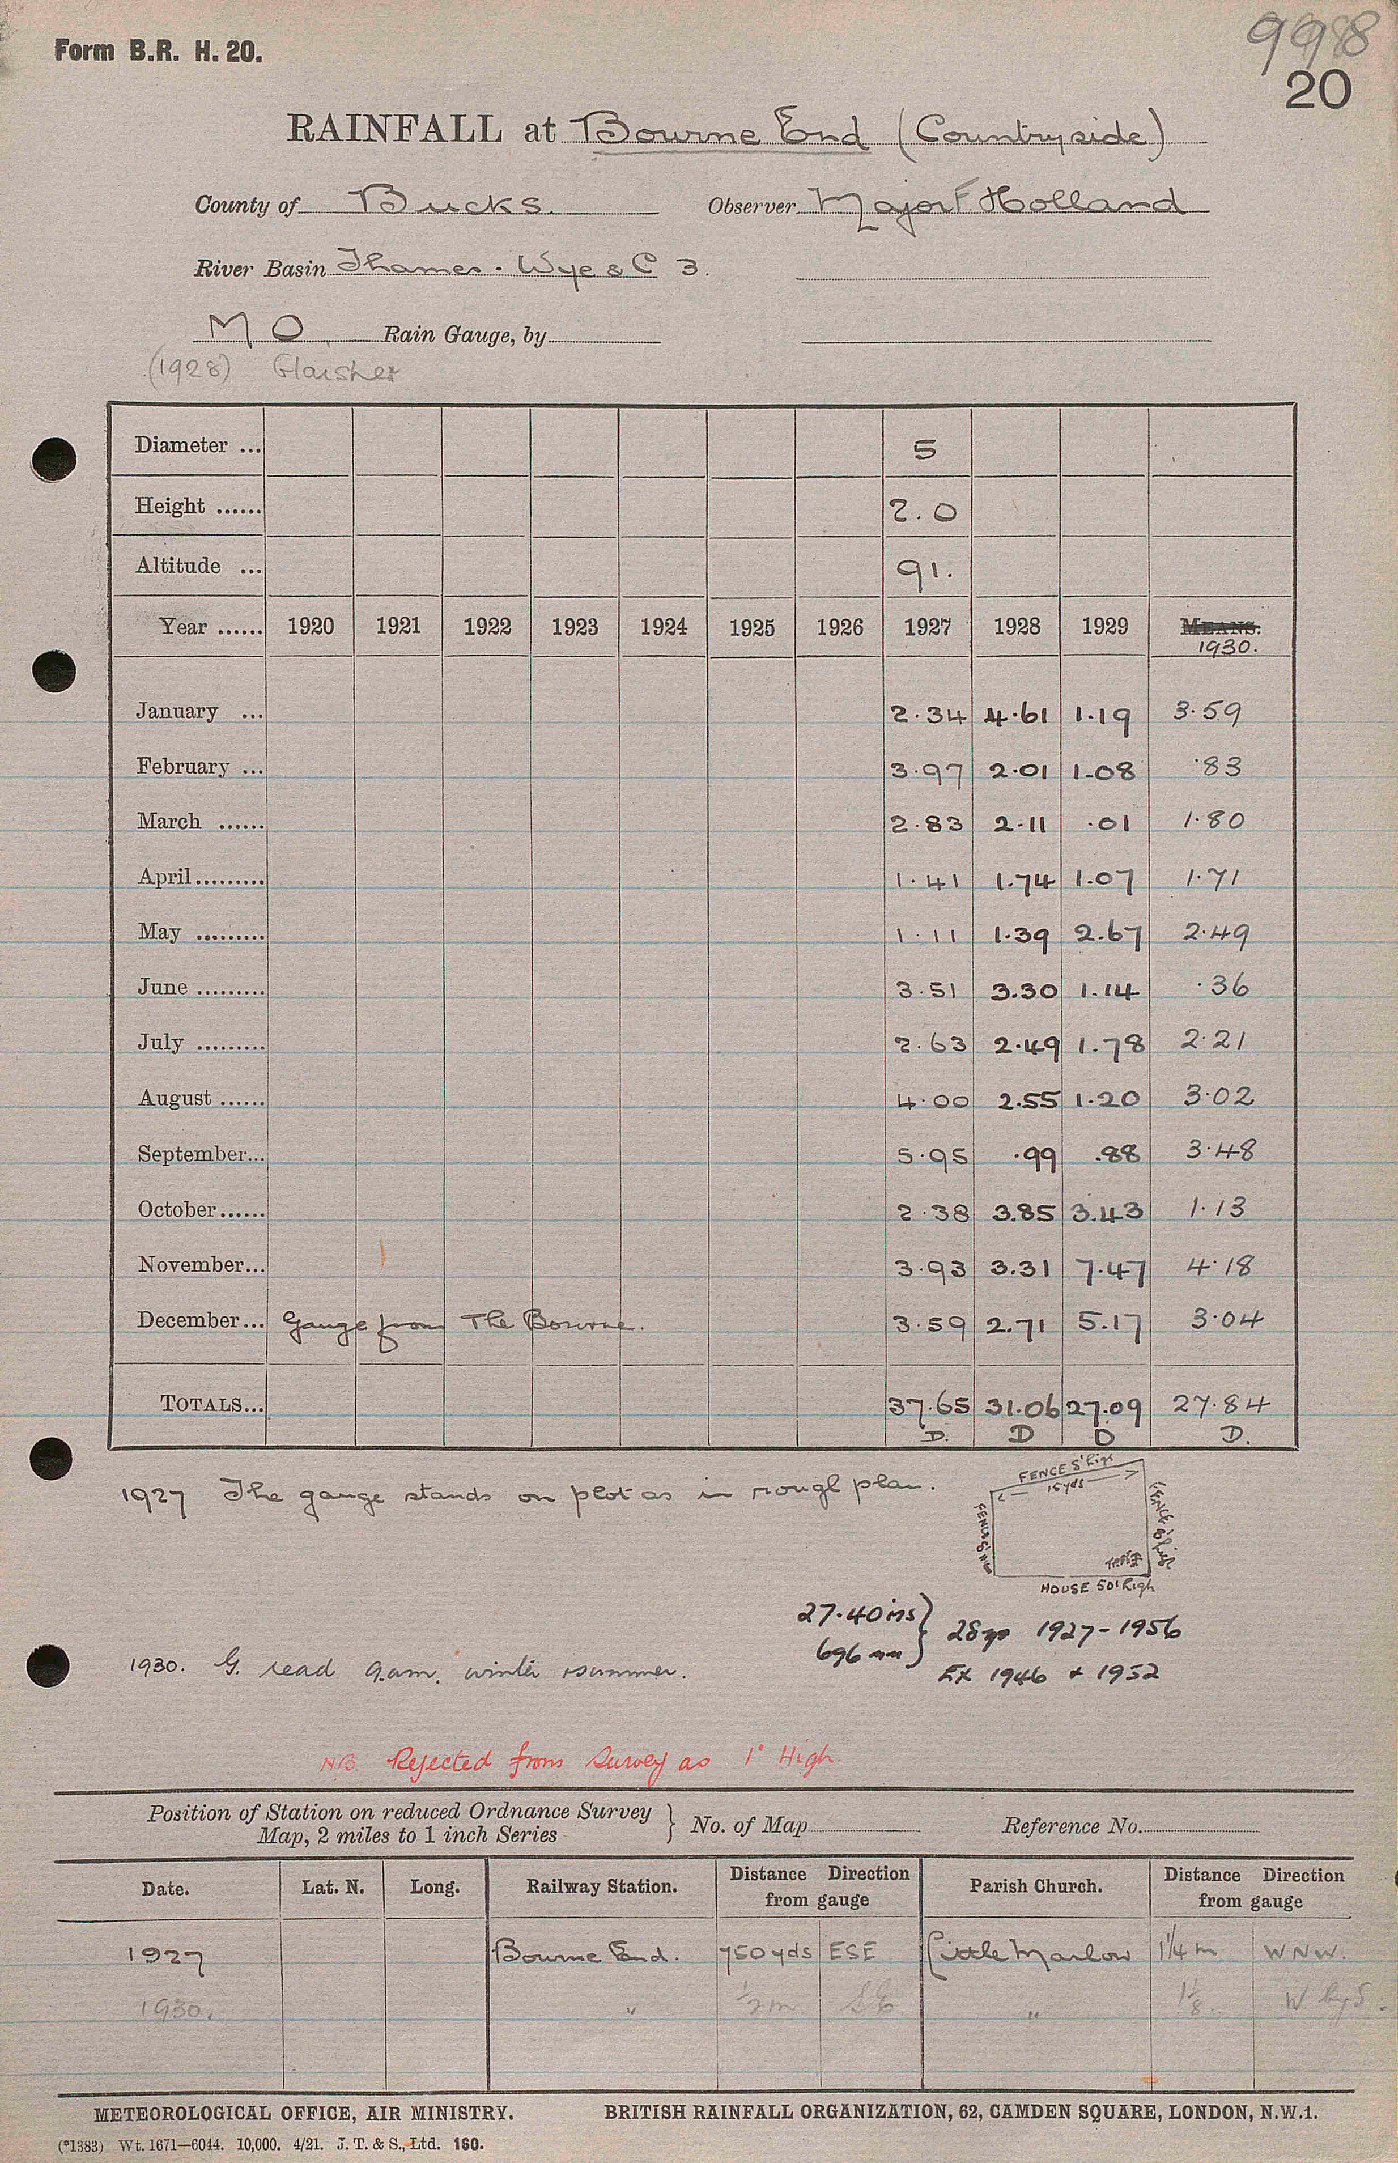 998
Form B.R. H. 20.
20
RAINFALL at Bourne End (Countryside)
County of Bucks. Observer Major F Holland
River Basin Thames - Wye & C 3.
M O Rain Gauge, by
(1928) Glaisher
Diameter ... 5
Height ...... 2.0
Altitude ... 91.
Year ...... 1920 1921 1922 1923 1924 1925 1926 1927 1928 1929 MEANS.
1930.
January ... 2.34 4.61 1.19 3.59
February ... 3.97 2.01 1.08 .83
March ...... 2.83 2.11 .01 1.80
April......... 1.41 1.74 1.07 1.71
May ......... 1.11 1.39 2.67 2.49
June ......... 3.51 3.30 1.14 .36
July ......... 2.63 2.49 1.78 2.21
August ...... 4.00 2.55 1.20 3.02
September... 5.95 .99 .88 3.48
October...... 2.38 3.85 3.43 1.13
November... 3.93 3.31 7.47 4.18
December... Gauge from The Bourne. 3.59 2.71 5.17 3.04
TOTALS... 37.65 31.06 27.09 27.84
D. D D D.
1927 The gauge stands on plot as in rough plan.
FENCE 5' high
15 yds
FENCE 5' high
FENCE high
HOUSE 50' high
27.40 ins } 28 yrs 1927-1956
696 mm } Ex 1946 + 1952
1930. G. read 9am. winter & summer.
NB. Rejected from Survey as 1" High
Position of Station on reduced Ordnance Survey
Map, 2 miles to 1 inch Series } No. of Map Reference No.
Date. Lat. N. Long. Railway Station. Distance Direction from gauge Parish Church. Distance Direction from gauge
1927 Bourne End. 750 yds ESE Little Marlow 1¼ m WNW.
1930. " ½ m SE " 1⅛ W by S.
METEOROLOGICAL OFFICE, AIR MINISTRY. BRITISH RAINFALL ORGANIZATION, 62, CAMDEN SQUARE, LONDON, N.W.1.
(*1383) Wt. 1671—6044. 10,000. 4/21. J. T. & S., Ltd. 160.